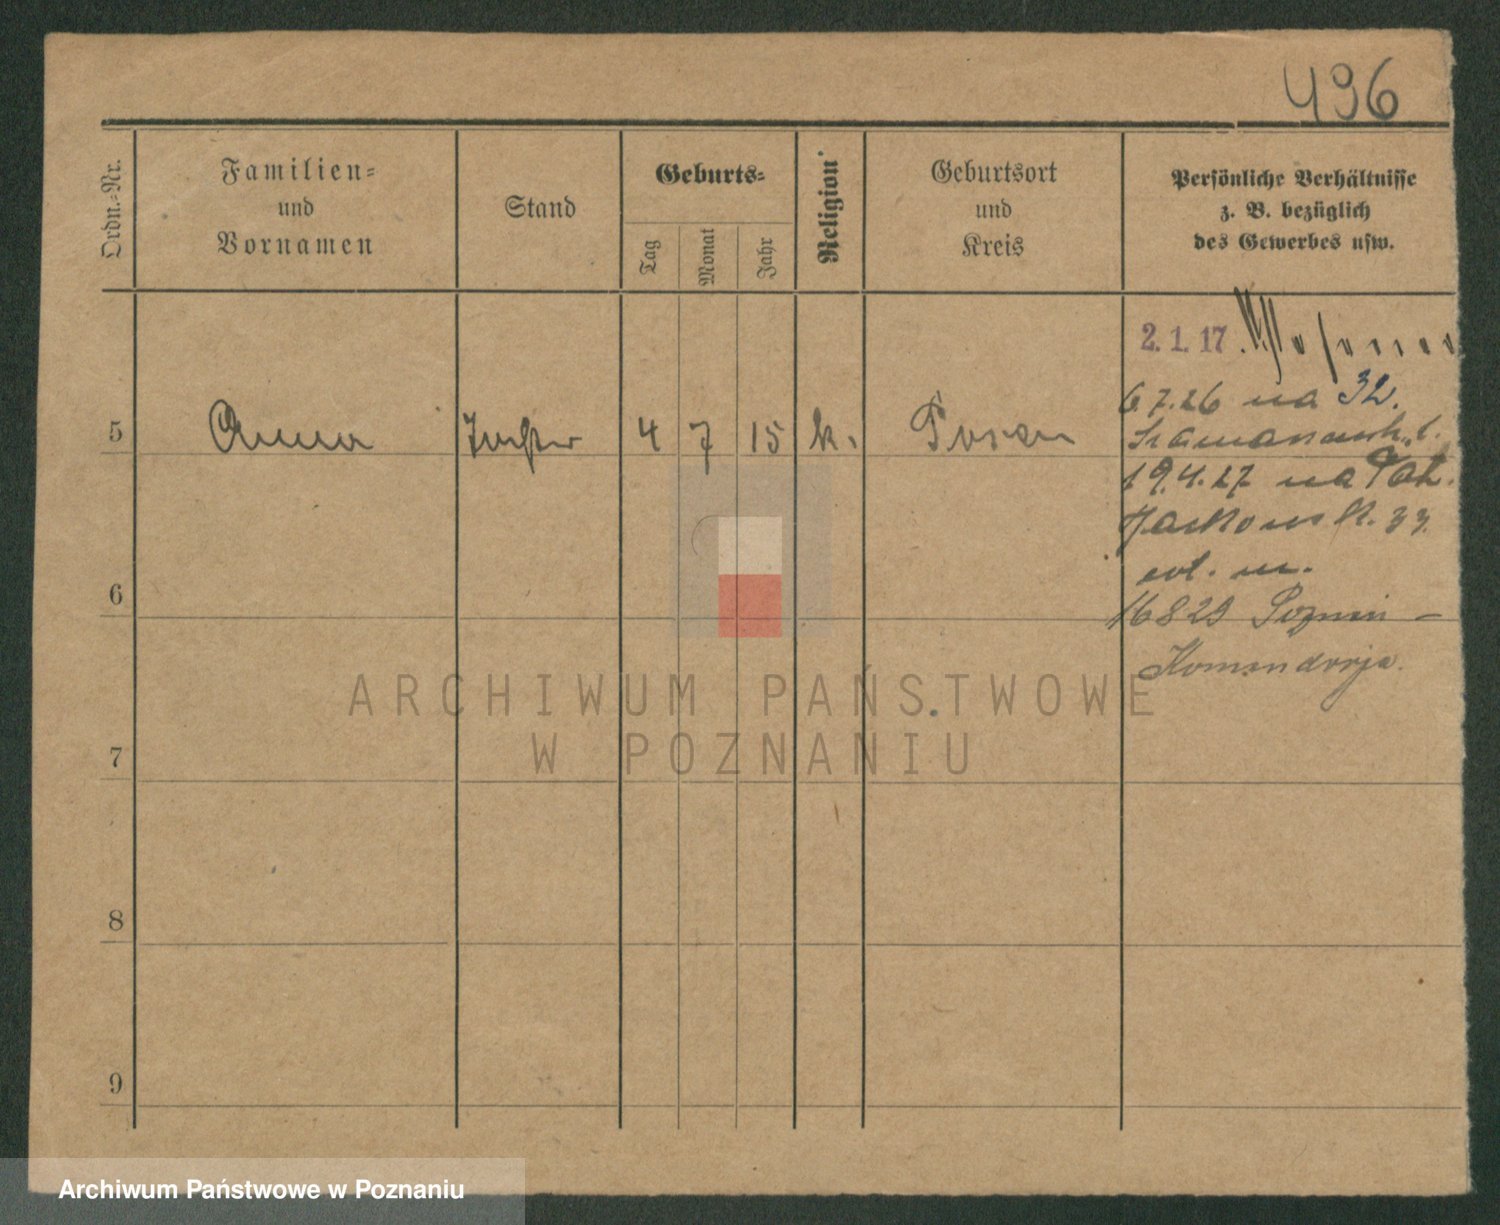 496
Ordn.-Nr.
Familien-
und
Vornamen
Stand
Geburts-
Tag
Monat
Jahr
Religion
Geburtsort
und
Kreis
Persönliche Verhältnisse
z. B. bezüglich
des Gewerbes usw.
2. 1. 17.
6.7.26 na 32.
5 Anna Tochter 4 7 15 k. Posen
19.4.27 na
Jackowsk. 33.
6
16829 Poznań –
Komandorja.
ARCHIWUM PAŃSTWOWE
W POZNANIU
7
8
9
Archiwum Państwowe w Poznaniu